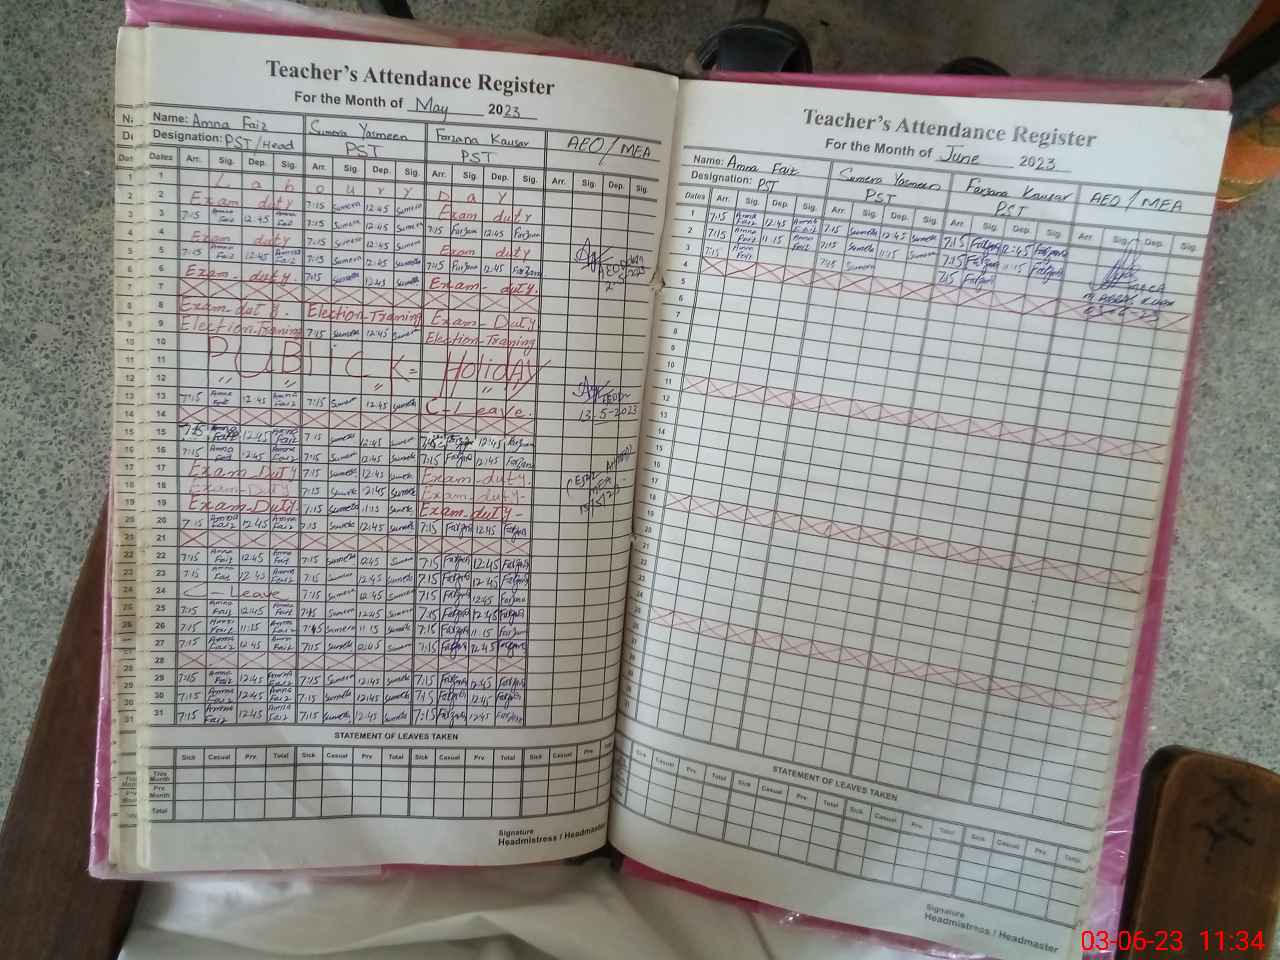 Teacher's Attendance Register
For the Month of May 2023
Name: Amna Faiz Sumera Yasmeen Farzana Kausar AEO/MEA
Designation: PST/Head PST PST
Dates Arr. Sig. Dep. Sig. Arr. Sig. Dep. Sig. Arr. Sig. Dep. Sig. Arr. Sig. Dep. Sig.
1 Labour Day
2 Exam duty 7:15 Sumera 12:45 Sumera Exam duty
3 7:15 Amna Faiz 12:45 Amna Faiz 7:15 Sumera 12:45 Sumera 7:15 Farzana 12:45 Farzana
4 Exam duty 7:15 Sumera 12:45 Sumera Exam duty
5 7:15 Amna Faiz 12:45 Amna Faiz 7:15 Sumera 12:45 Sumera 7:15 Farzana 12:45 Farzana
6 Exam duty. 7:15 Sumera 12:45 Sumera Exam- duty.
7
8 Exam duty. Election-Training Exam-Duty
9 Election-Training 7:15 Sumera 12:45 Sumera Election-Training
10
11 PUBLiCK= Holiday
12 " " " "
13 7:15 Amna Faiz 12:45 Amna Faiz 7:15 Sumera 12:45 Sumera C-Leave. 13-5-2023
14
15 7:15 Amna Faiz 12:45 Amna Faiz 7:15 Sumera 12:45 Sumera 7:15 12:45 Farzana
16 7:15 Amna Faiz 12:45 Amna Faiz 7:15 Sumera 12:45 Sumera 7:15 Farzana 12:45 Farzana
17 Exam Duty 7:15 Sumera 12:45 Sumera Exam-duty.
18 Exam-Duty 7:15 Sumera 12:45 Sumera Exam-duty-
19 Exam-Duty. 7:15 Sumera 11:15 Sumera Exam-duty-
20 7:15 Amna Faiz 12:45 Amna Faiz 7:15 Sumera 12:45 Sumera 7:15 Farzana 12:45 Farzana
21
22 7:15 Amna Faiz 12:45 Amna Faiz 7:15 Sumera 12:45 Sumera 7:15 Farzana 12:45 Farzana
23 7:15 Amna Faiz 12:45 Amna Faiz 7:15 Sumera 12:45 Sumera 7:15 Farzana 12:45 Farzana
24 C-Leave 7:15 Sumera 12:45 Sumera 7:15 Farzana 12:45 Farzana
25 7:15 Amna Faiz 12:45 Amna Faiz 7:15 Sumera 12:45 Sumera 7:15 Farzana 12:45 Farzana
26 7:15 Amna Faiz 11:15 Amna Faiz 7:15 Sumera 11:15 Sumera 7:15 Farzana 11:15 Farzana
27 7:15 Amna Faiz 12:45 Amna Faiz 7:15 Sumera 12:45 Sumera 7:15 Farzana 12:45 Farzana
28
29 7:15 Amna Faiz 12:45 Amna Faiz 7:15 Sumera 12:45 Sumera 7:15 Farzana 12:45 Farzana
30 7:15 Amna Faiz 12:45 Amna Faiz 7:15 Sumera 12:45 Sumera 7:15 Farzana 12:45 Farzana
31 7:15 Amna Faiz 12:45 Amna Faiz 7:15 Sumera 12:45 Sumera 7:15 Farzana 12:45 Farzana
STATEMENT OF LEAVES TAKEN
Sick Casual Prv. Total Sick Casual Prv. Total Sick Casual Prv. Total Sick Casual Prv. Total
This Month
Pre Month
Total
Signature
Headmistress / Headmaster
Teacher's Attendance Register
For the Month of June 2023
Name: Amna Faiz Sumera Yasmeen Farzana Kausar AEO/MEA
Designation: PST PST PST
Dates Arr. Sig. Dep. Sig. Arr. Sig. Dep. Sig. Arr. Sig. Dep. Sig. Arr. Sig. Dep. Sig.
1 7:15 Amna Faiz 12:45 Amna Faiz 7:15 Sumera 12:45 Sumera 7:15 Farzana 12:45 Farzana
2 7:15 Amna Faiz 11:15 Amna Faiz 7:15 Sumera 11:15 Sumera 7:15 Farzana 11:15 Farzana
3 7:15 Amna Faiz 7:15 Sumera 7:15 Farzana
4
5
6
7
8
9
10
11
12
13
14
15
16
17
18
19
20
21
22
23
STATEMENT OF LEAVES TAKEN
Sick Casual Prv. Total Sick Casual Prv. Total Sick Casual Prv. Total Sick Casual Prv. Total
Signature
Headmistress / Headmaster
03-06-23 11:34